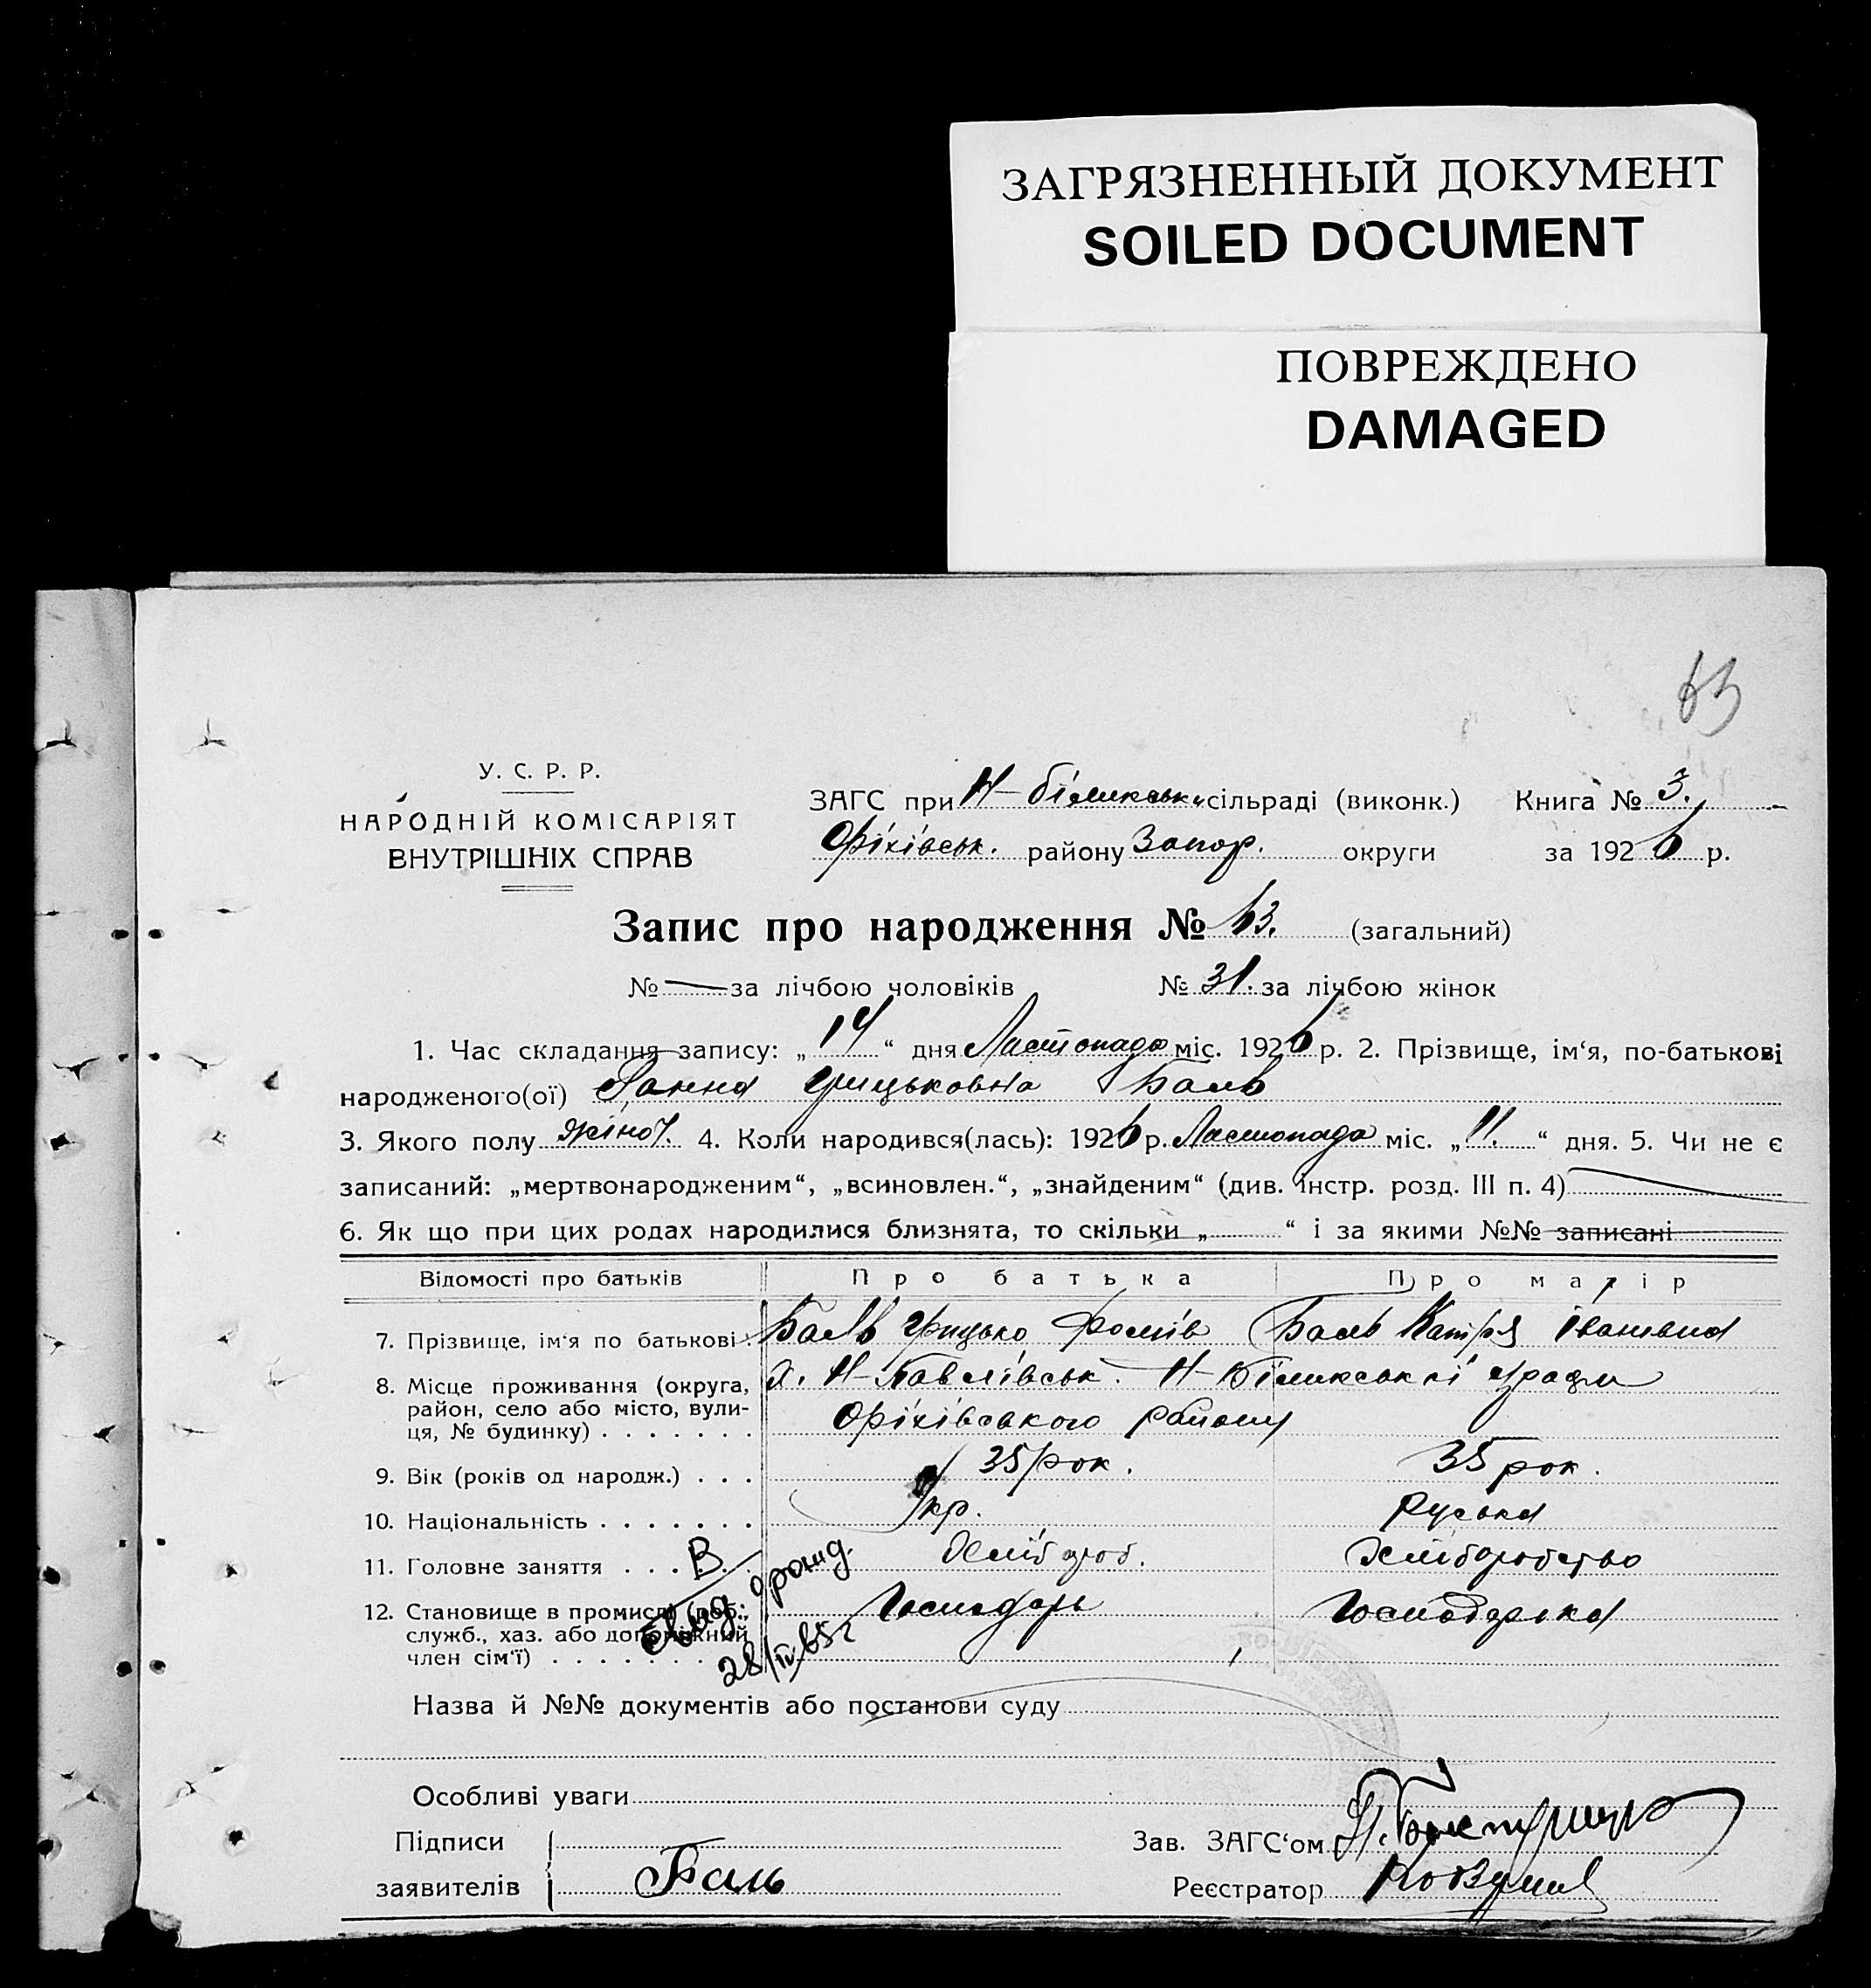 ЗАГРЯЗНЕННЫЙ ДОКУМЕНТ
SOILED DOCUMENT
ПОВРЕЖДЕНО
DAMAGED
63
У. С. Р. Р.
НАРОДНІЙ КОМІСАРІЯТ
ВНУТРІШНІХ СПРАВ
ЗАГС при сільраді (виконк.) Книга № 3.
Оріхівськ. району Запор. округи за 1926 р.
Запис про народження № 63. (загальний)
№ — за лічбою чоловіків № 31. за лічбою жінок
1. Час складання запису: „14“ дня Листопада міс. 1926 р. 2. Прізвище, ім‘я, по-батькові
народженого(ої) Ганна Грицьковна Баль
3. Якого полу жіноч. 4. Коли народився(лась): 1926 р. Листопада міс. „11.“ дня. 5. Чи не є
записаний: „мертвонародженим“, „всиновлен.“, „знайденим“ (див. інстр. розд. III п. 4)
6. Як що при цих родах народилися близнята, то скільки „ “ і за якими №№ записані
Відомості про батьків Про батька Про матір
7. Прізвище, ім‘я по батькові . Баль Грицько Фомів Баль Катря Іванівна
8. Місце проживання (округа,
район, село або місто, вули-
ця, № будинку) . . . . . . .
х. Н-Павлівськ. Н-Біликської
Оріхівського району
9. Вік (років од народж.) . . . 35 рок. 35 рок.
10. Національність . . . . . . . Укр. руська
11. Головне заняття . . . . . . Хліб роб. Хліборобство
12. Становище в промислі (роб.,
служб., хаз. або допоміжний
член сім‘ї) . . . . . . . .
Господарь Господарка
В
Свид. о рожд.
28/IV 65 г
Назва й №№ документів або постанови суду
Особливі уваги
Підписи
заявителів
Баль
Зав. ЗАГС‘ом
Реєстратор